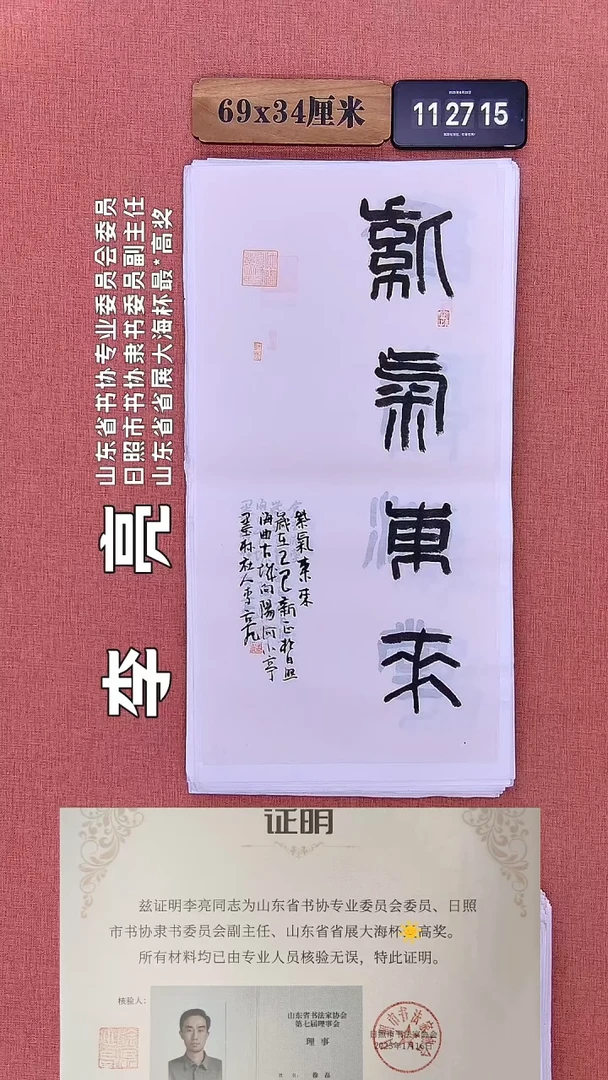 69x34厘米
2025年8月20日
11 27 15
山东省书协专业委员会委员
日照市书协隶书委员副主任
山东省省展大海杯最*高奖
李亮
紫氣東来
紫氣東来
歲在乙巳新正於日照
海曲古城向陽河小亭
墨村社人李亮
证明
兹证明李亮同志为山东省书协专业委员会委员、日照
市书协隶书委员会副主任、山东省省展大海杯高奖。
所有材料均已由专业人员核验无误，特此证明。
核验人：
山东省书法家协会
第七届理事会
理事
日照市书法家协会
2025年1月16日